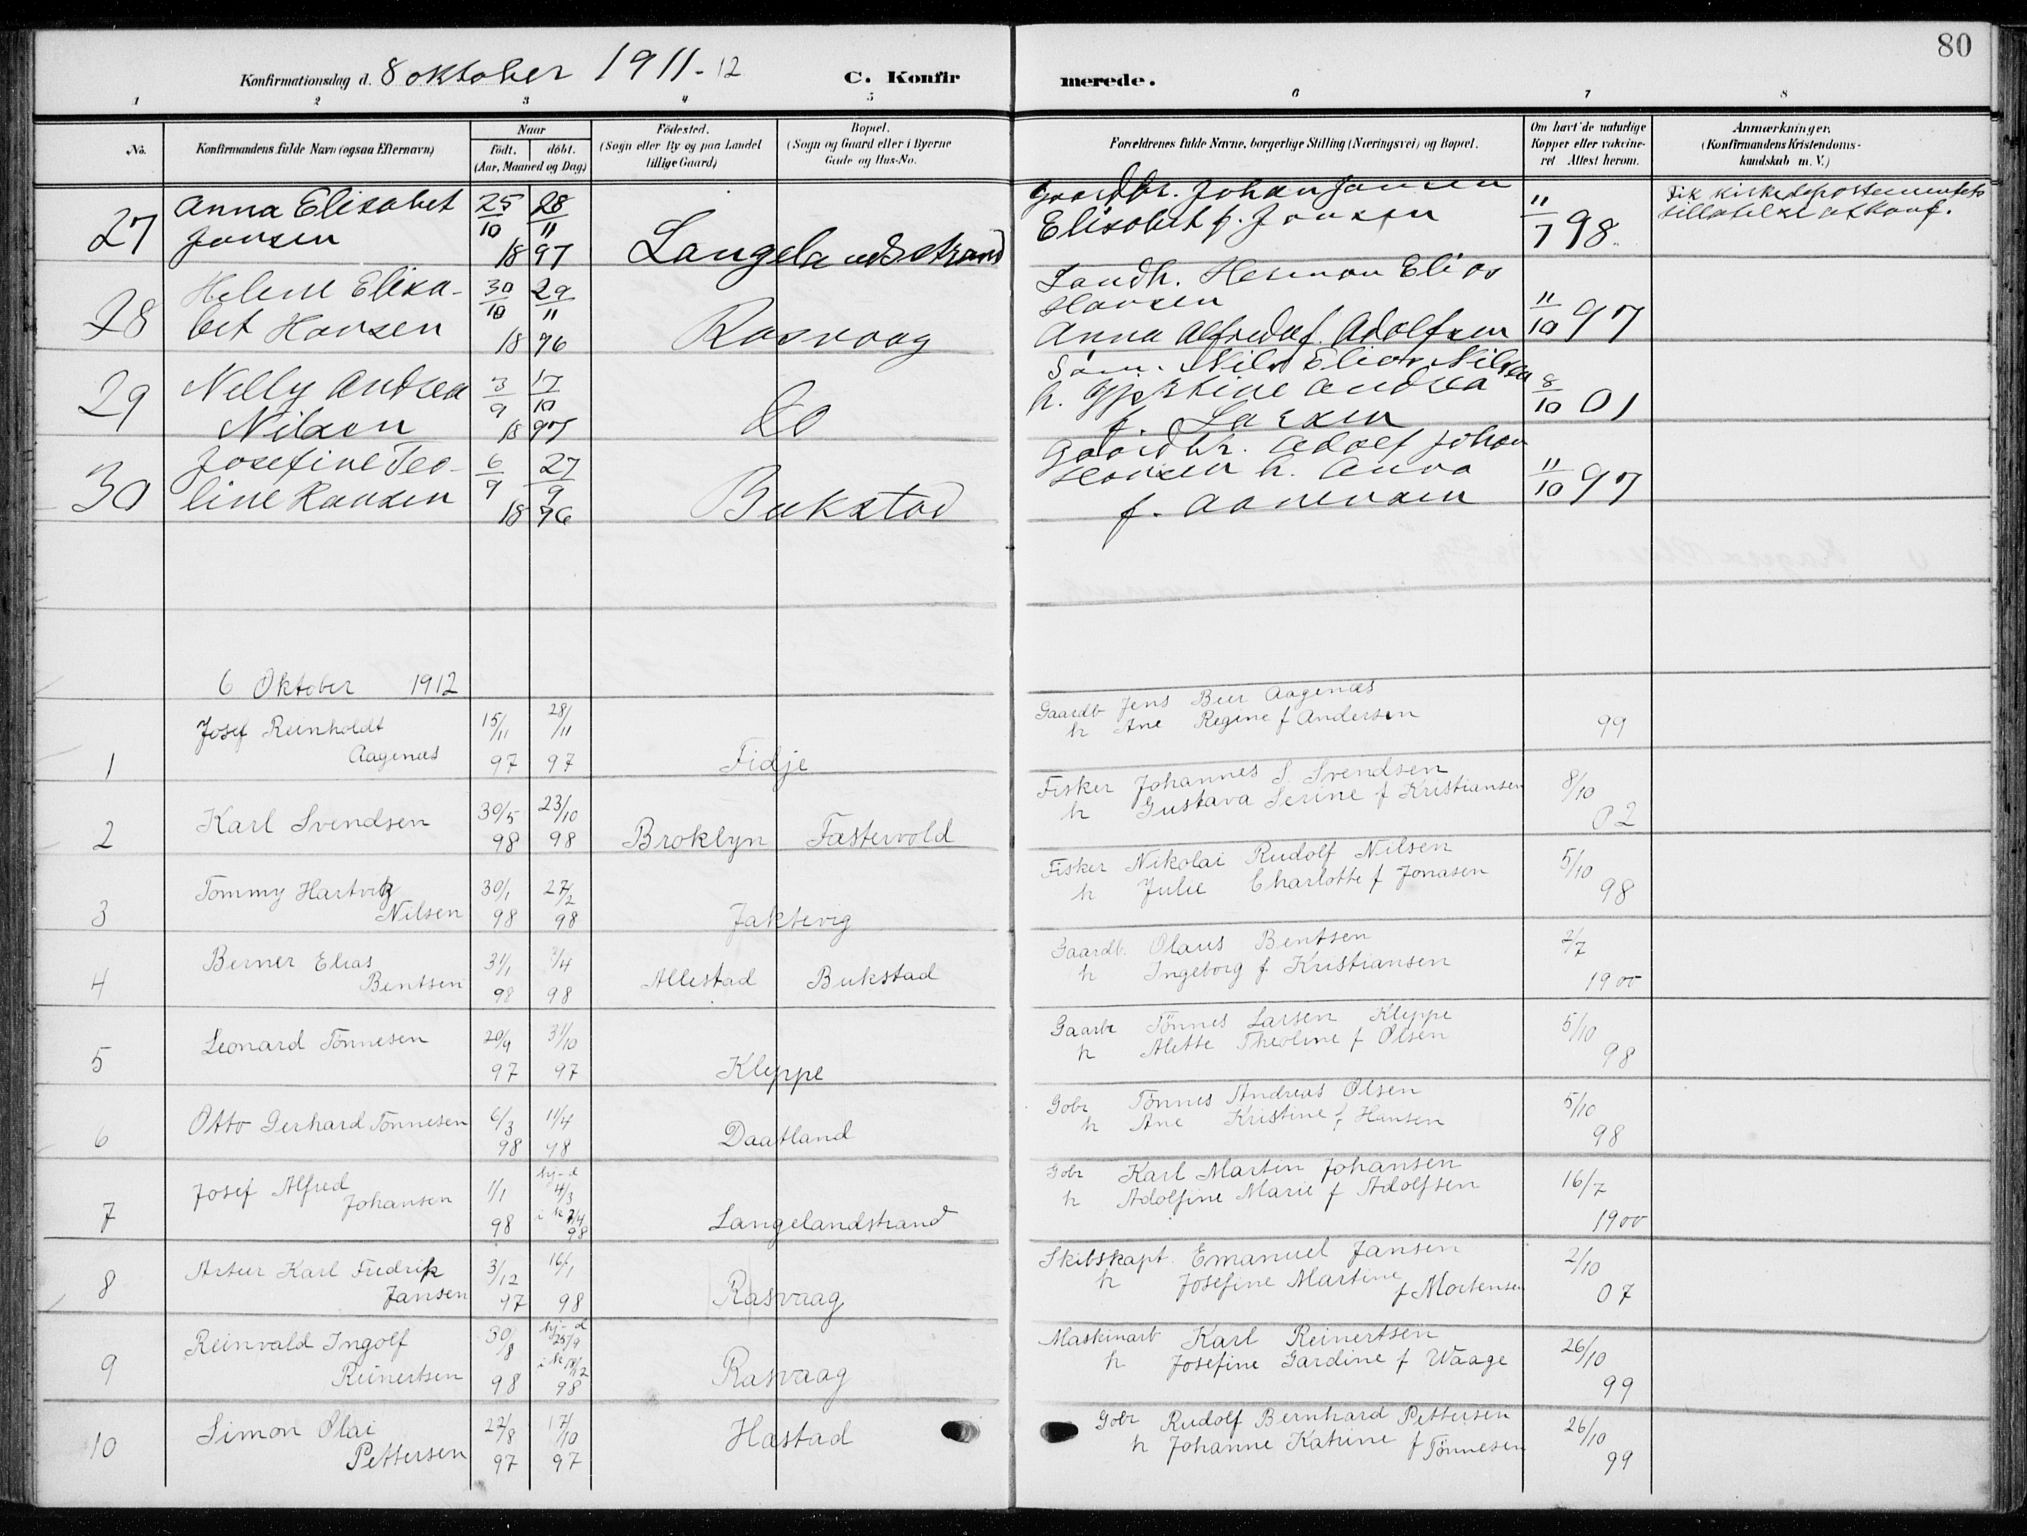 80
Konfirmationsdag d. 8 oktober 1911-12 C. Konfirmerede.
1 2 3 4 5 6 7 8
No.
Konfirmandens fulde Navn (ogsaa Efternavn)
Naar
født. døbt.
(Aar, Maaned og Dag)
Fødested.
(Sogn eller By og paa Landet
tillige Gaard)
Bopæl.
(Sogn og Gaard eller i Byerne
Gade og Hus-No.
Forældrenes fulde Navne, borgerlige Stilling (Næringsvei) og Bopæl.
Om havt de naturlige
Kopper eller vakcine-
ret Attest herom.
Anmærkninger.
(Konfirmandens Kristendoms-
kundskab m. V.)
27 Anna Elisabet Jansen 25/10 28/11 1897 Langelandstrand
Gaardbr. Johan Jansen
Elisabet f. Jonsen 11/7 98.
Fik kirkedepartementets
tillatelse at konf.
28 Helene Elisa-
bet Hansen 30/10 29/11 1896 Rasvaag
Landh. Herman Elias
Hansen
Anna Alfreda f. Adolfsen 11/10 97
29 Nelly Andrea
Nilsen 3/9 17/10 1897 do
Søm. Nils Elias Nilsen
h. Gjertine Andrea
f. Larsen 8/10 01
30 Josefine Teo-
line Hansen 6/9 27/9 1896 Bukstad
Gaardbr. Adolf Johan
Hansen h. Anna
f. Aanensen 11/10 97
6 Oktober 1912
1 Josef Reinholdt
Aagenæs 15/11 97 28/11 97 Fidje
Gaardb Jens Beer Aagenæs
h Ane Regine f Andersen 99
2 Karl Svendsen 30/5 98 23/10 98 Broklyn Fastervold
Fisker Johannes S. Svendsen
h Gustava Serine f Kristiansen 8/10 02
3 Tommy Hartvig
Nilsen 30/1 98 27/2 98 Jaktevig
Fisker Nikolai Rudolf Nilsen
h Julie Charlotte f Jonasen 5/10 98
4 Berner Elias
Bentsen 31/1 98 3/4 98 Allestad Bukstad
Gaardb. Olaus Bentsen
h Ingeborg f Kristiansen 2/7 1900
5 Leonard Tønnesen 20/9 97 31/10 97 Kleppe
Gaarbr Tønnes Larsen Kleppe
h Alette Theoline f Olsen 5/10 98
6 Otto Gerhard Tønnesen 6/3 98 11/4 98 Daatland
Gobr Tønnes Andreas Olsen
h Ane Kristine f Hansen 5/10 98
7 Josef Alfred
Johansen 1/1 98 hj-d 4/3 i k 7/4 98 Langelandstrand
Gobr Karl Martin Johansen
h Adolfine Marie f Adolfsen 16/7 1900
8 Artur Karl Fredrik
Jansen 3/12 97 16/1 98 Rasvaag
Skibskapt. Emanuel Jansen
h Josefine Martine
f Mortensen 2/10 07
9 Reinvald Ingolf
Reinertsen 30/8 98 hj-d 25/9 i k 18/12 98 Rasvaag
Maskinarb Karl Reinertsen
h Josefine Gardine f Waage 26/10 99
10 Simon Olai
Pettersen 27/8 97 17/10 97 Hastad
Gobr Rudolf Bernhard Pettersen
h Johanne Katrine f Tønnesen 26/10 99